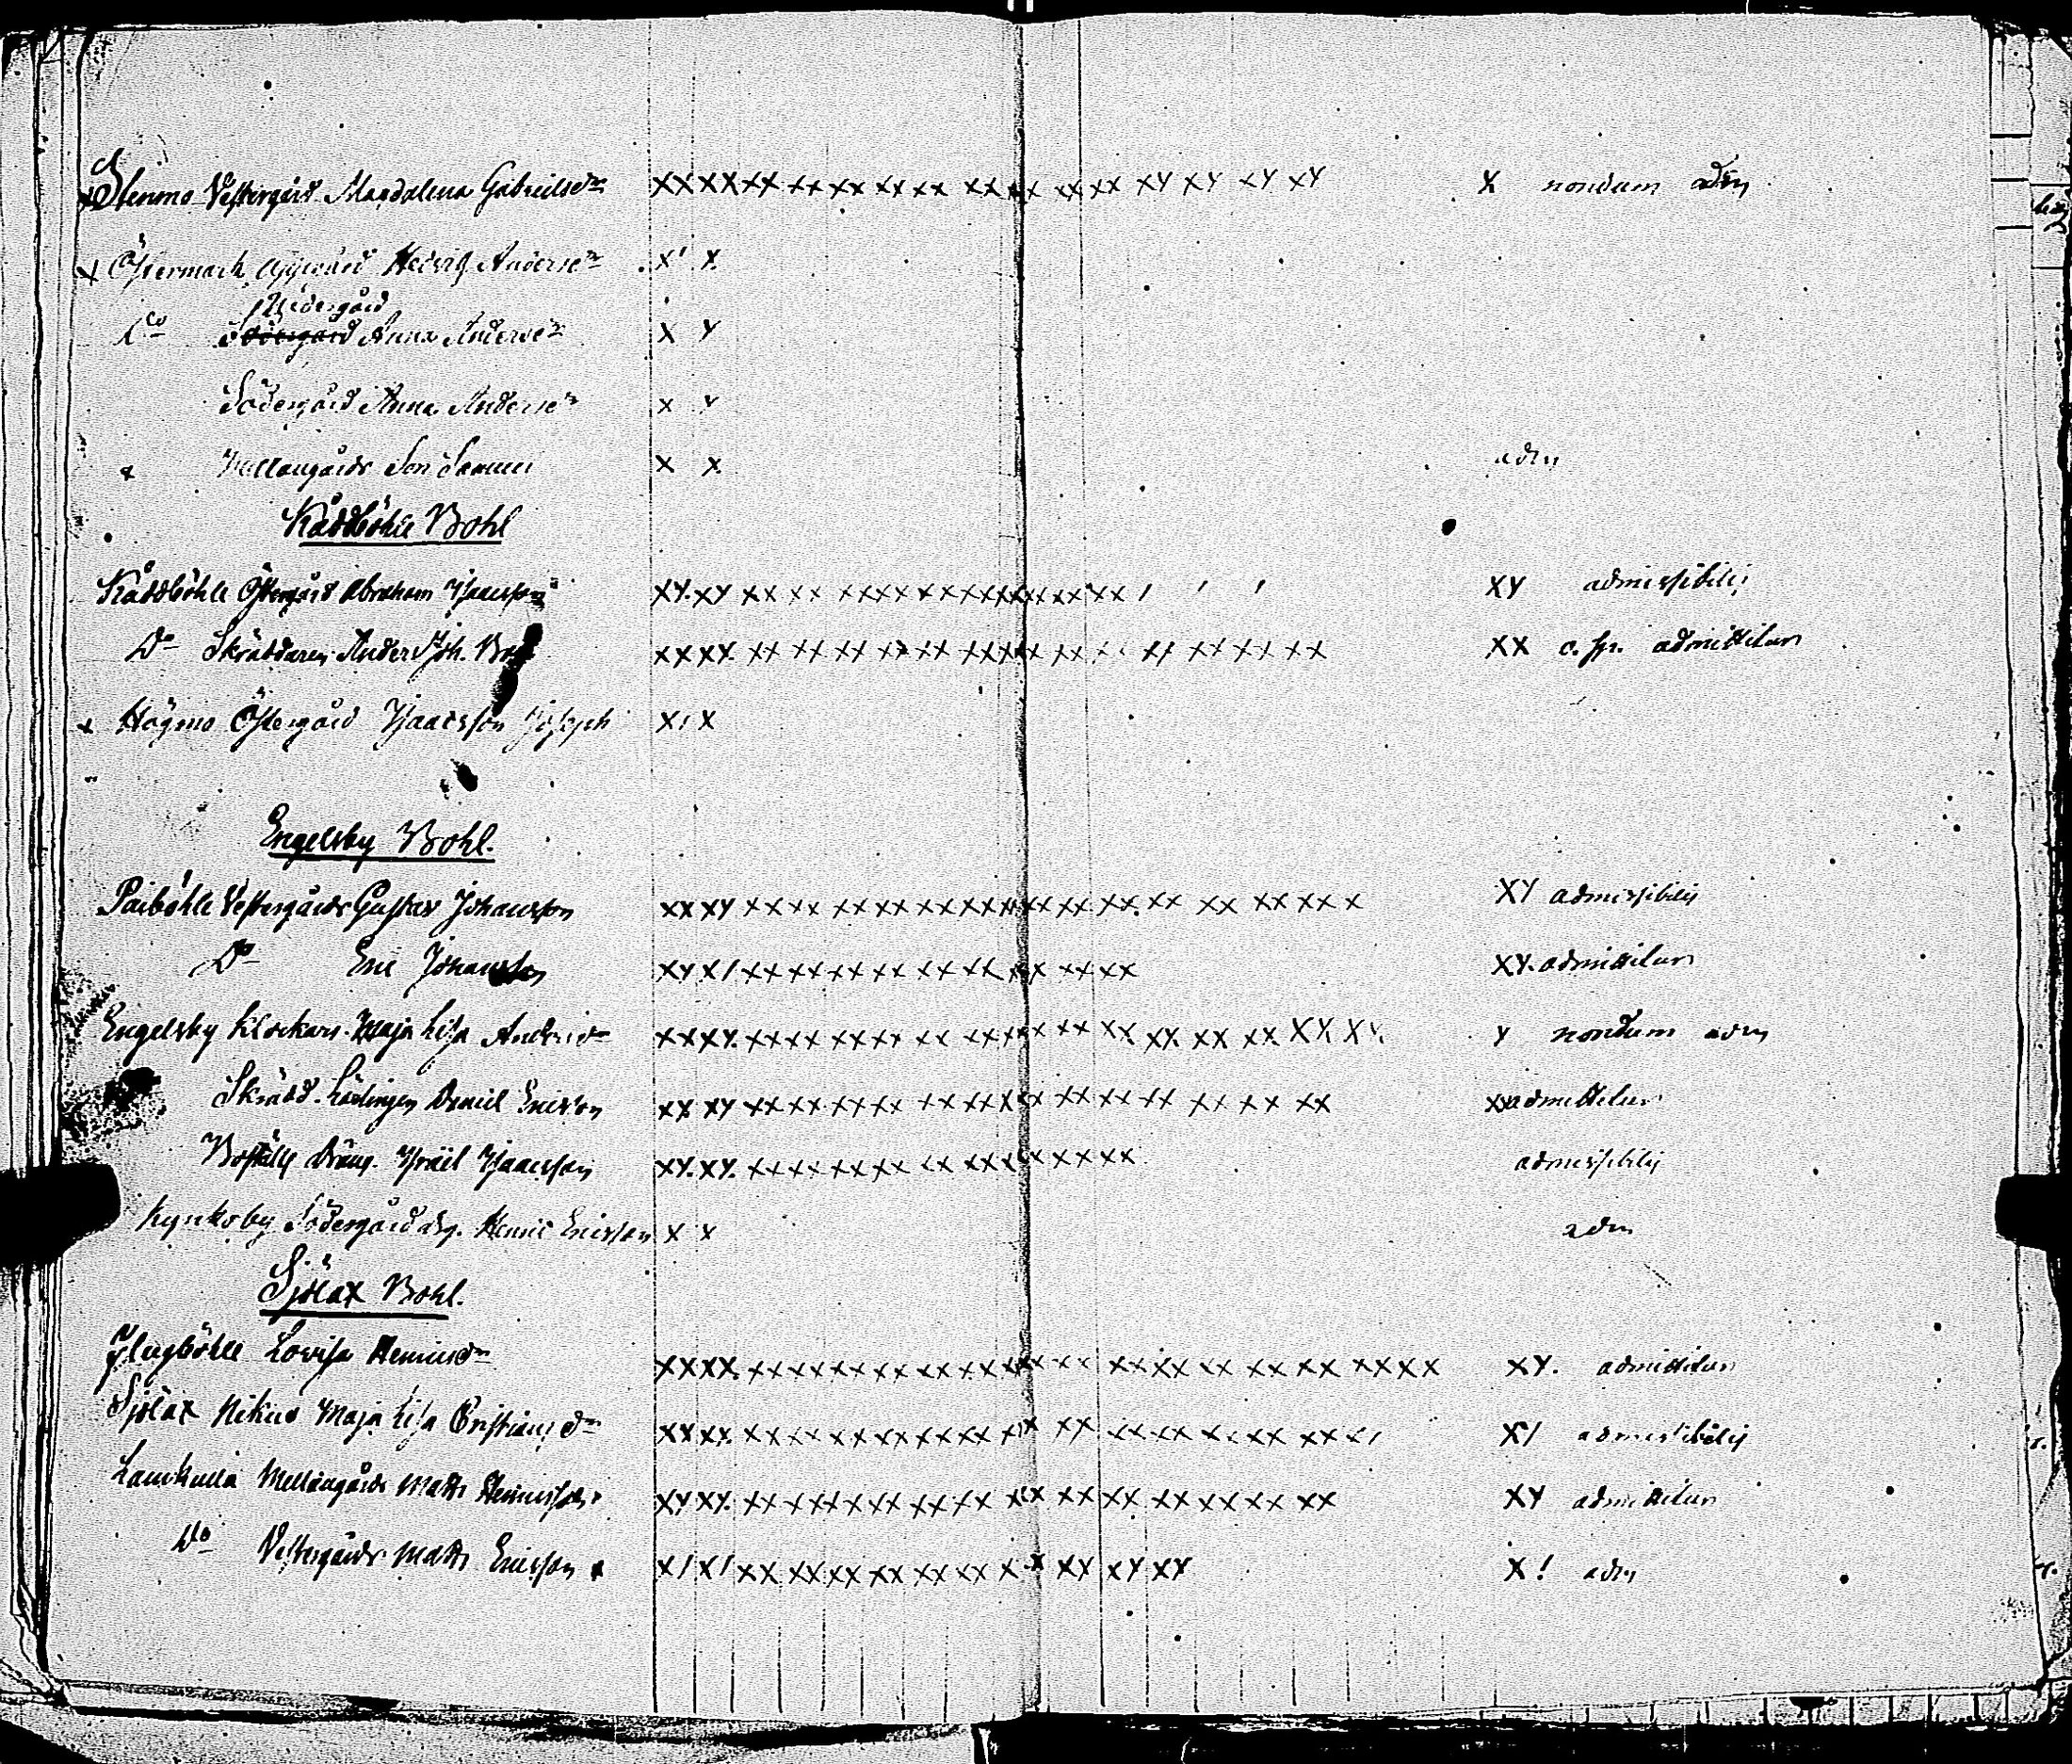 Stenmo Vestergård Magdalena Gabrielsdr XX XX XX XX XX XX XX XX XX XX XX XY XY XY XY X nondum adm
x Östermark Hedvig Andersdr X' X
Nedergård
Do Södergård Anna Andersdr X Y
Södergård Anna Andersdr X Y
x Mellangårds Son X X adm
Kåddböhle Bohl
Kåddböhle Östergård Abraham Isacsson XY XY XX XX XX XX XX XX XX XX XX / ' ' XY admissibilis
Do Skräddaren Anders Joh. XX XY XX XX XX XX XX XX XX XX XX XX XX XX c. sp. admittitur
x Högmo Östergård Isaacsson Joseph X / X
Engelsby Bohl.
Paiböhle Vestergårds Gustav Johansson XX XY XX XX XX XX XX XX XX XX XX XX XX XX XX X XY admissibilis
Do Eric Johansson XY X/ XX XX XX XX XX XX XX XX XX XY. admittitur
Engelsby Klockars Maja Lisa Andersdr XX XY XX XX XX XX XX XX XX XX XX XX XX XX XY XY Y nondum adm
Skrädd. Lärlingen Daniel Ericsson XX XY XX XX XX XX XX XX XX XX XX XX XX XX XX admittitur
Boställs dräng Israël Isaacsson XY XY XX XX XX XX XX XX XX XX XX admissibilis
Kynkoby Södergård drg. Henric Ericsson X X adm
Sjölax Bohl.
Flugböhle Lovisa Henricsdr XX XX XX XX XX XX XX XX XX XX XX XX XX XX XX XX XX XY. admittitur
Sjölax Nikus Maja Lisa Cristiansdr XX XX XX XX XX XX XX XX XX XX XX XX XX XX X/ X/ admissibilis
Lamkulla Mellangårds Matts Henricsson XY XY XX XX XX XX XX XX XX XX XX XX XX XX XX XY admittitur
Do Vestergårds Matts Ericsson x X/ X/ XX XX XX XX XX XX X X XY XY XY X! adm